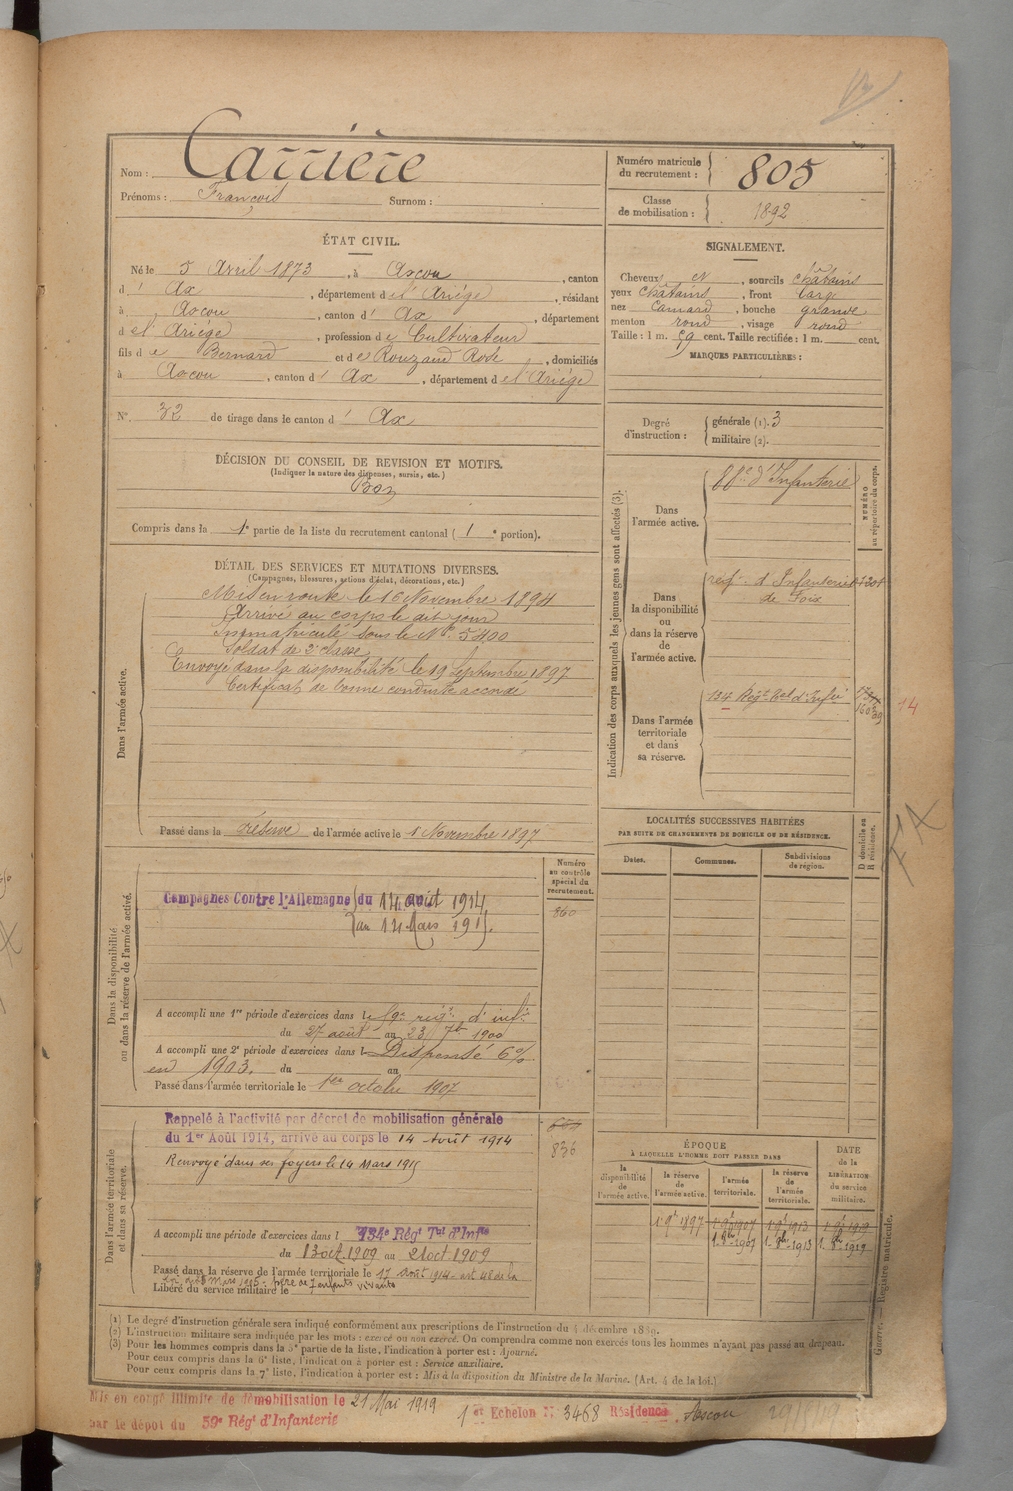 Nom : Carrière
Prénoms : François Surnom :
Numéro matricule du recrutement : 805
Classe de mobilisation : 1892
ÉTAT CIVIL.
Né le 5 Avril 1873, à Ascou, canton
d' Ax, département de l'Ariège, résidant
à Ascou, canton d' Ax, département
de l'Ariège, profession de Cultivateur
fils de Bernard et de Rouzaud Rose, domiciliés
à Ascou, canton d' Ax, département de l'Ariége
N° 32 de tirage dans le canton d' Ax
SIGNALEMENT.
Cheveux et, sourcils châtains
yeux châtains, front large
nez Camard, bouche grande
menton rond, visage rond
Taille : 1 m. 59 cent. Taille rectifiée : 1 m. cent.
MARQUES PARTICULIÈRES :
Degré d'instruction :
générale (1). 3
militaire (2).
DÉCISION DU CONSEIL DE REVISION ET MOTIFS.
(Indiquer la nature des dispenses, sursis, etc.)
Bon
Compris dans la 1e partie de la liste du recrutement cantonal ( 1 e portion).
DÉTAIL DES SERVICES ET MUTATIONS DIVERSES.
(Campagnes, blessures, actions d'éclat, décorations, etc.)
Dans l'armée active.
Mis en route le 16 Novembre 1894
Arrivé au corps le dit jour
Immatriculé sous le N° 5400
Soldat de 2e classe
Envoyé dans la disponibilité le 19 Septembre 1897
Certificat de bonne conduite accordé
Passé dans la réserve de l'armée active le 1 Novembre 1897
Indication des corps auxquels les jeunes gens sont affectés (3).
NUMÉRO au répertoire du corps.
Dans l'armée active.
88e d'Infanterie
Dans la disponibilité ou dans la réserve de l'armée active.
d'Infanterie
de Foix
Dans l'armée territoriale et dans sa réserve.
134 Régt Tal d'Infie
14
LOCALITÉS SUCCESSIVES HABITÉES
PAR SUITE DE CHANGEMENTS DE DOMICILE OU DE RÉSIDENCE.
Dates. Communes. Subdivisions de région. D domicile ou R résidence.
Dans la disponibilité ou dans la réserve de l'armée active.
Numéro au contrôle spécial du recrutement.
860
Campagnes Contre l'Allemagne du 14 août 1914
au 14 Mars 1915.
A accompli une 1re période d'exercices dans le 59e régt d'infie
du 27 août au 23 7b 1900
A accompli une 2e période d'exercices dans l Dispensé 6%
en 1903. du au
Passé dans l'armée territoriale le 1er octobre 1907
Dans l'armée territoriale et dans sa réserve.
Rappelé à l'activité par décret de mobilisation générale
du 1er Août 1914, arrivé au corps le 14 Août 1914
836
Renvoyé dans ses foyers le 14 Mars 1915
A accompli une période d'exercices dans l 134e Régt Tal d'Infie
du 13 oct 1909 au 21 oct 1909
Passé dans la réserve de l'armée territoriale le 17 Août 1914 - art 48 de la
Libéré du service militaire le
père de 7 enfants vivants
ÉPOQUE
À LAQUELLE L'HOMME DOIT PASSER DANS
DATE de la LIBÉRATION du service militaire.
la disponibilité de l'armée active. la réserve de l'armée active. l'armée territoriale. la réserve de l'armée territoriale.
(1) Le degré d'instruction générale sera indiqué conformément aux prescriptions de l'instruction du 4 décembre 1889.
(2) L'instruction militaire sera indiquée par les mots : exercé ou non exercé. On comprendra comme non exercés tous les hommes n'ayant pas passé au drapeau.
(3) Pour les hommes compris dans la 5e partie de la liste, l'indication à porter est : Ajourné.
Pour ceux compris dans la 6e liste, l'indication à porter est : Service auxiliaire.
Pour ceux compris dans la 7e liste, l'indication à porter est : Mis à la disposition du Ministre de la Marine. (Art. 4 de la loi.)
Guerre. — Registre matricule.
Mis en congé illimité de démobilisation le 21 Mai 1919
1er Echelon N° 3468 Résidence Ascou
par le dépôt du 59e Régt d'Infanterie
FA